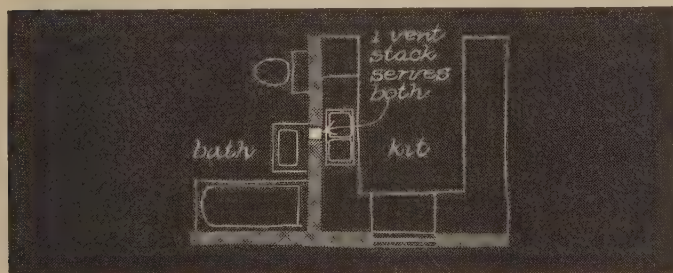 1 vent
stack
serves
both
bath
kit